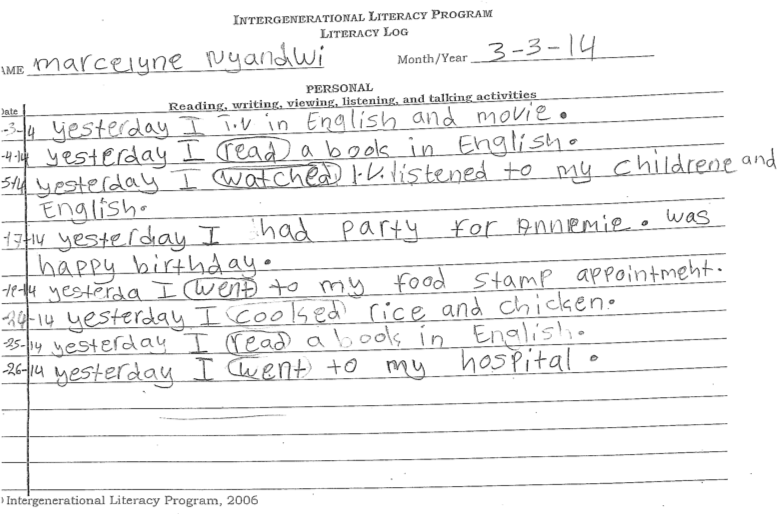 INTERGENERATIONAL LITERACY PROGRAM
LITERACY LOG
AME marcelyne Nyandwi Month/Year 3-3-14
PERSONAL
Date Reading, writing, viewing, listening, and talking activities
-3-14 yesterday I T.V in English and movie.
-4-14 yesterday I read a book in English.
5-14 yesterday I watched T.V. listened to my childrene and
English.
17-14 yesterday I had party for Annemie. was
happy birthday.
yesterda I went to my food stamp appointment.
-24-14 yesterday I cooked rice and chicken.
-25-14 yesterday I read a book in English.
-26-14 yesterday I went to my hospital.
Intergenerational Literacy Program, 2006